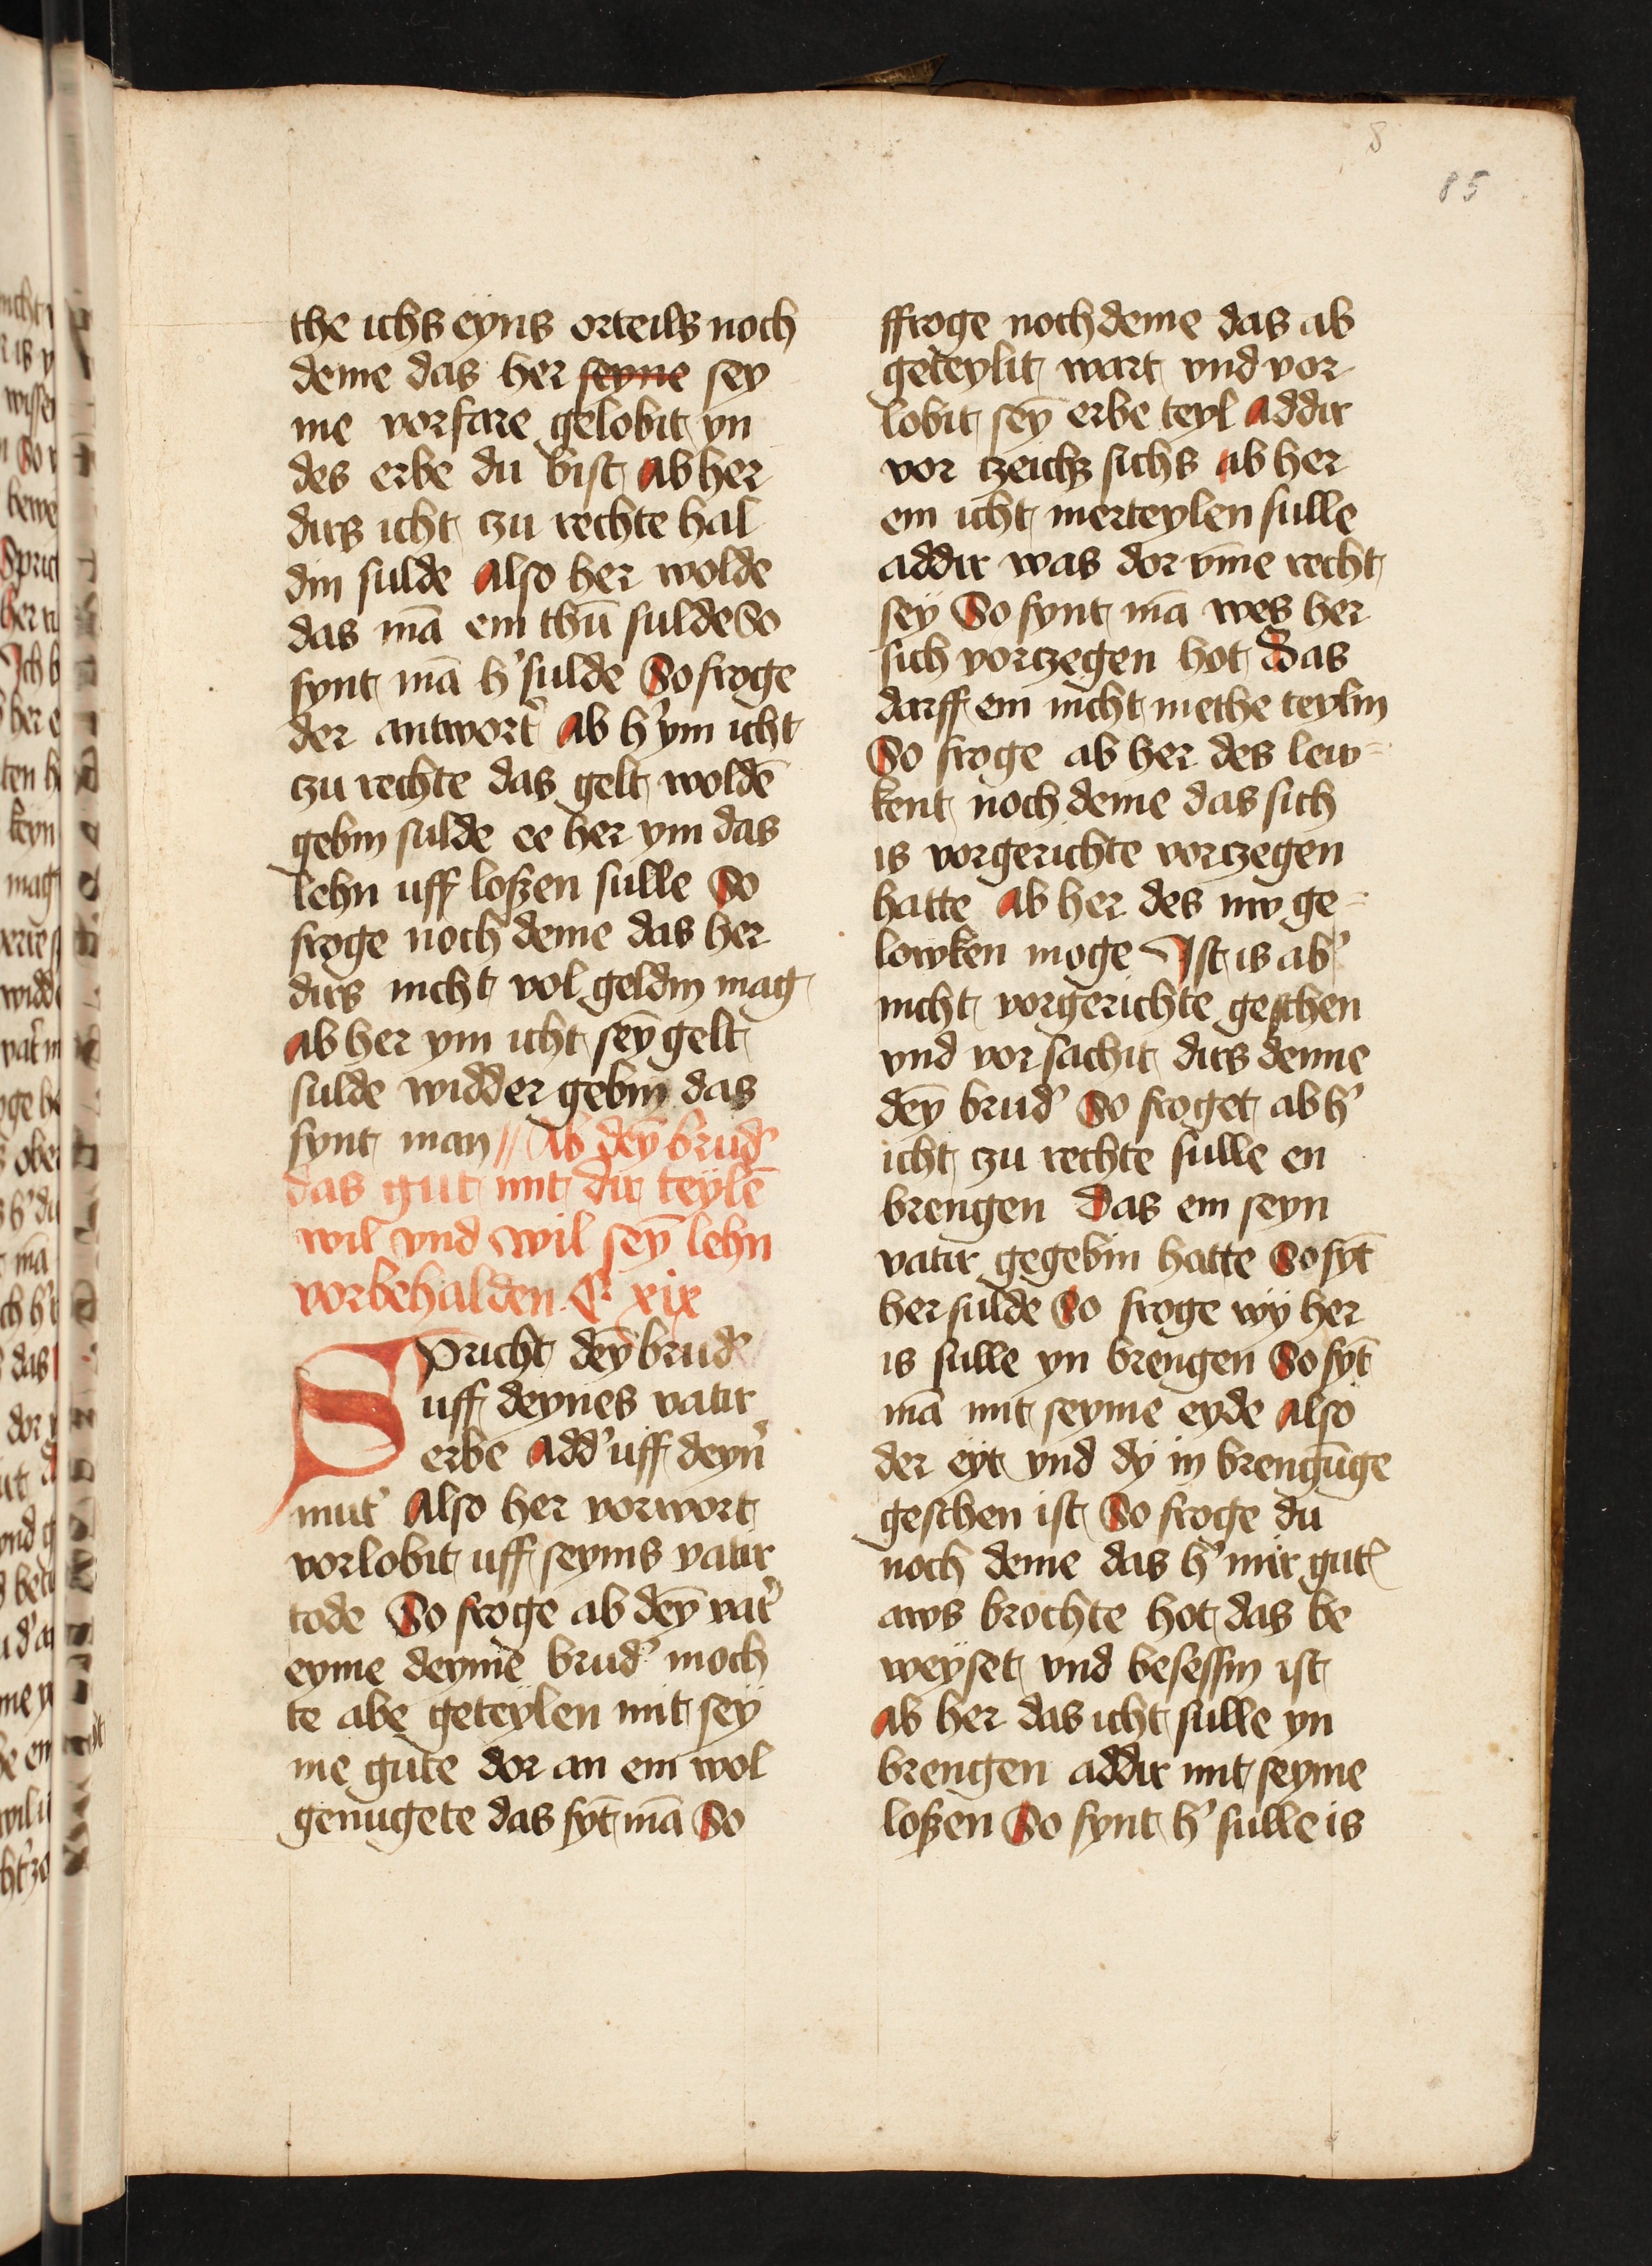 8
85
the ichs eyns orteils noch
deme das her seyne sey
me vorfare gelobit yn
des erbe du bist Ab her
dirs icht zu rechte hal
din sulde Also her wolde
das mā em thū sulde So
fynt mā h' sulde So froge
der antwort' Ab h' ym icht
czu rechte das gelt woldē
gebin sulde ee her ym das
lehn uff loßen sulle So
froge noch deme das her
dirs nicht vol geldin mag
ab her ym icht sey̅ gelt
sulde widder gebin das
fynt man // Ab dey̅ brud'
das gut mit dir teylē
wil vnd wil sey̅ lehn
vorbehalden C' xix
Spricht dey̅ brud'
uff deynes vatir
erbe Add' uff deyn'
mut' Also her vorwort
vorlobit uff seyms vatir
tode So froge ab dey̅ vat'
eyme deyme brud' moch
te abe geteylen mit sey
me gute dor an em wol
genugete das fyt̅ mā So
ffroge noch deme das ab
geteylit wart vnd vor
lobit sey̅ erbe teyl Addir
vor czeich sichs ab her
em icht merteylen sulle
addir was dor vm̅e recht
sey So fynt mā wes her
sich vorczegen hot Das
darff em nicht methe teylin
So froge ab her des lew=
kent noch deme das sich
is vorgerichte vorczegen
hatte Ab her des nw ge=
lowken moge Ist is ab'
nicht vorgerichte geschen
vnd vor sachit dirs denne
dey̅ brud' So froget ab h'
icht zu rechte sulle en
brengen Das em seyn
vatir gegebin hatte So fyt̅
her sulde So froge wy her
is sulle yn brengen So fyt̅
mā mit seyme eyde Also
der eyt vnd dy in brengūge
geschen ist So froge du
noch deme das h' mir gut'
aws brochte hot das be
weyset vnd besessin ist
Ab her das icht sulle yn
brengen addir mit seyme
loßen So fynt h' sulle is